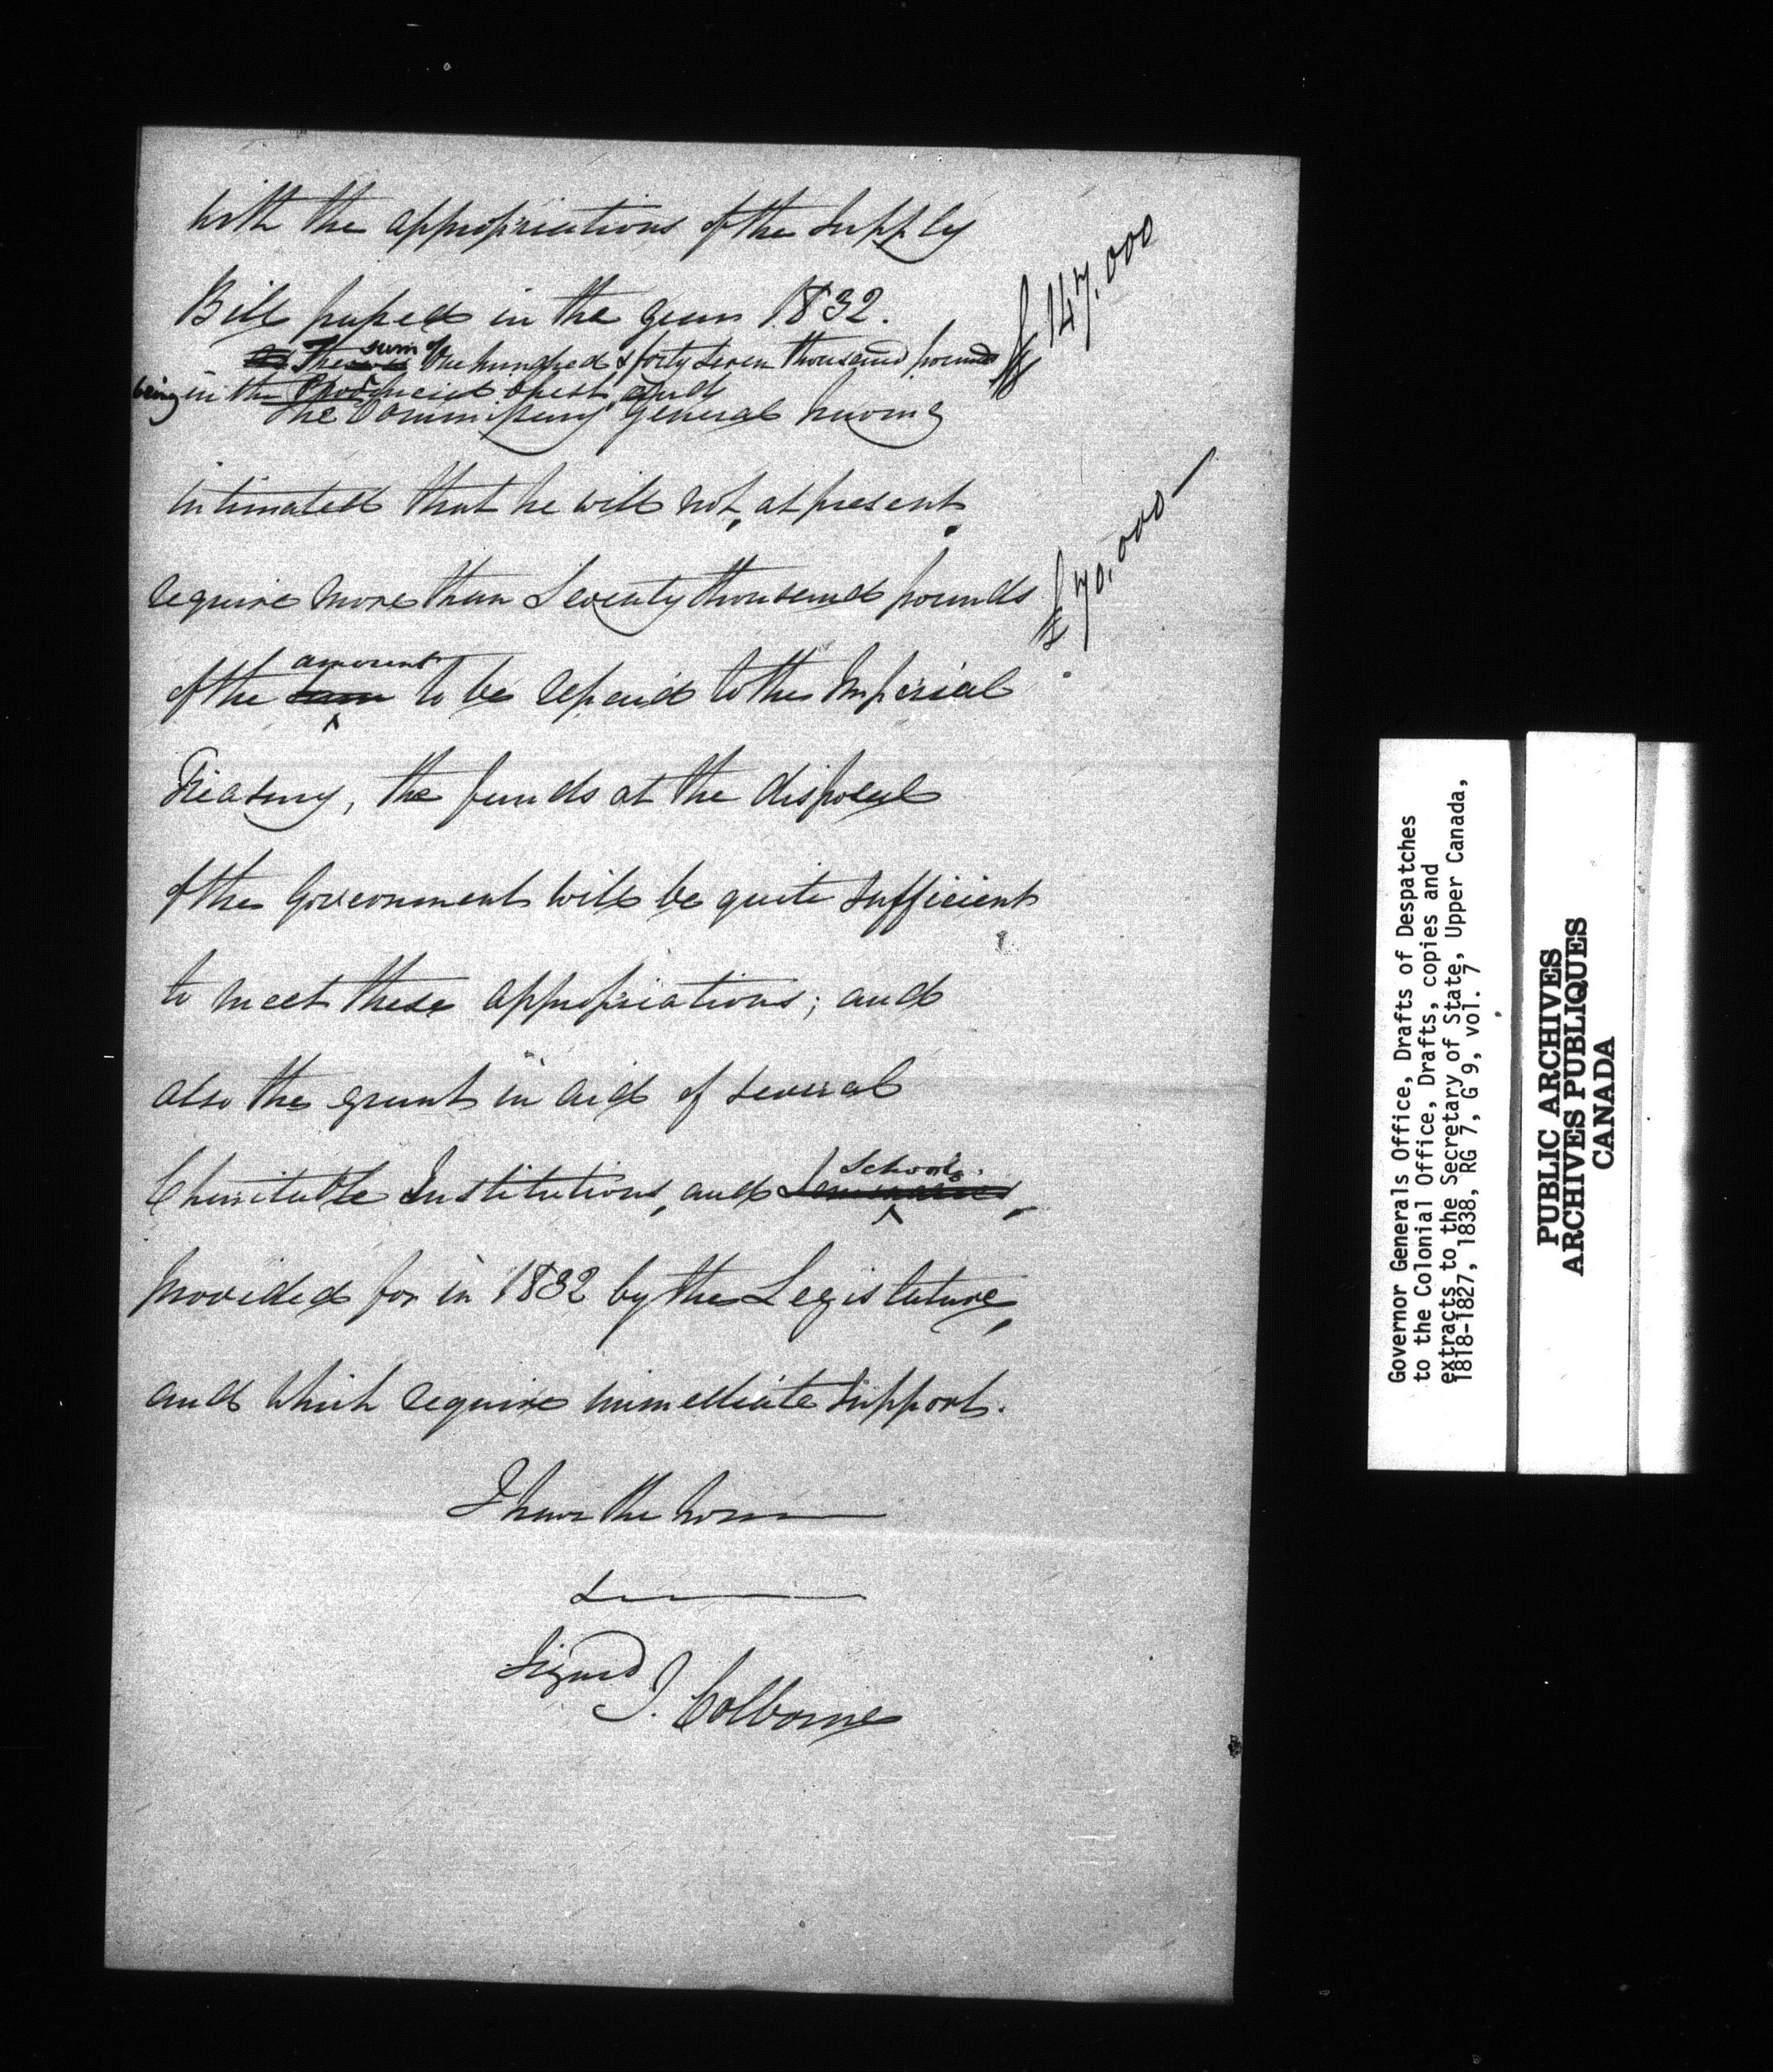 with the appropriations of the Supply
Bill passed in the year 1832.
£147,000
The sum of One hundred & forty seven thousand pounds
being in the Provincial Chest, and
the Commissary General having
intimated that he will not, at present,
require more than Seventy thousand pounds
£70,000 —
amount
of the sum to be repaid to the Imperial
Treasury, the funds at the disposal
of the Government will be quite sufficient
to meet these appropriations; and
also the grant in aid of several
Schools.
Charitable Institutions, and Seminaries,
provided for in 1832 by the Legislature,
and which require immediate support.
I have the honor
Signed
J. Colborne
Governor Generals Office, Drafts of Despatches
to the Colonial Office, Drafts, copies and
extracts to the Secretary of State, Upper Canada,
1818-1827, 1838, RG 7, G 9, vol. 7
PUBLIC ARCHIVES
ARCHIVES PUBLIQUES
CANADA